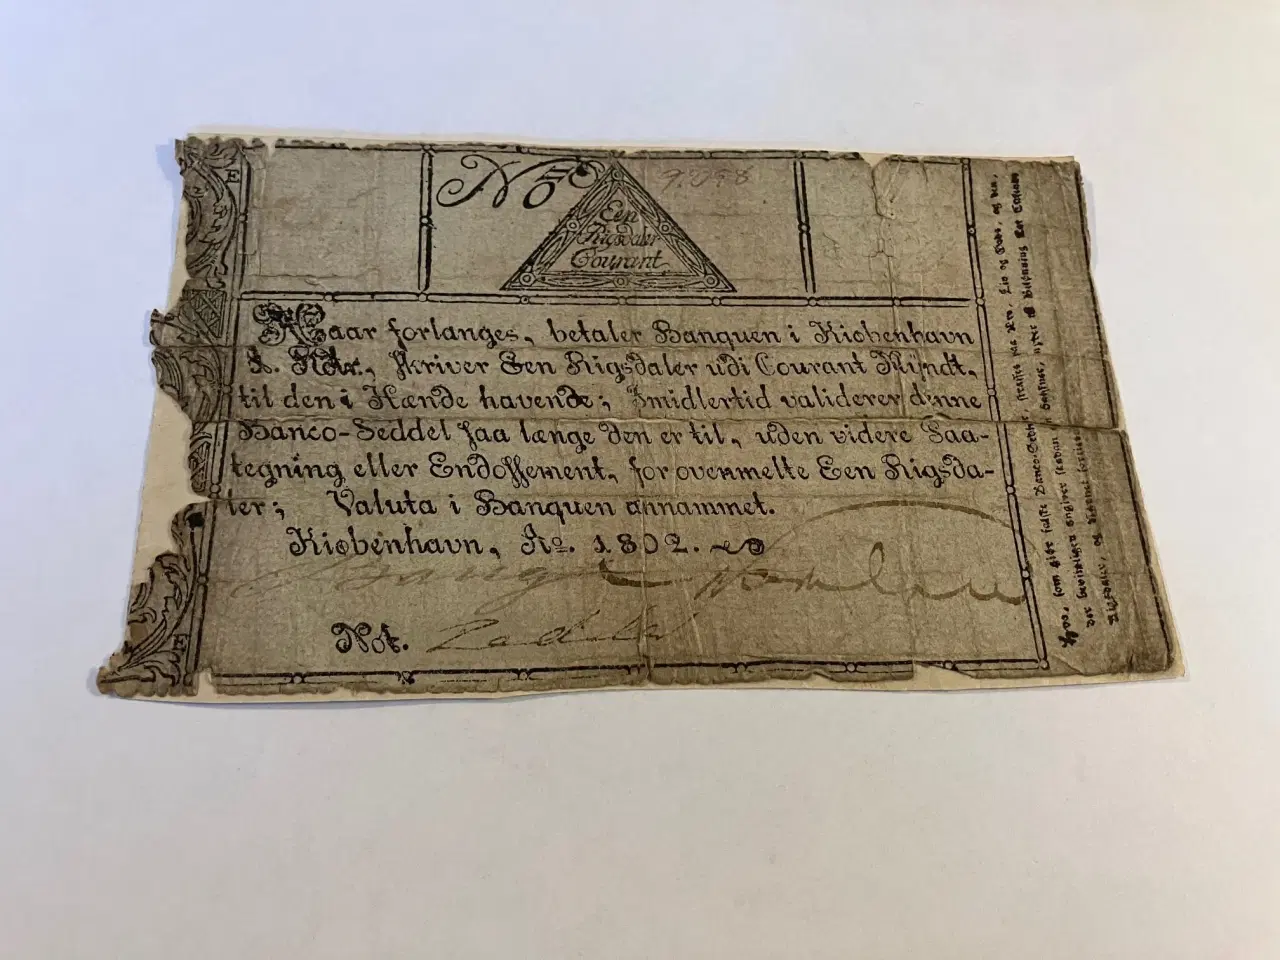 No
Een
Rigsdaler
Courant
Naar forlanges, betaler Banquen i Kiøbenhavn
skriver Een Rigsdaler udi Courant Mÿndt,
til den i Hænde havende; Imidlertid validerer denne
Banco-Seddel saa længe den er til, uden videre Paa-
tegning eller Endossement, for ovenmelte Een Rigsda-
ler; Valuta i Banquen annammet.
Kiøbenhavn, Ao. 1802.
Not.
E
E
som giør falske Banco-Sedler, straffes paa Ære, Liv og Gods, og den,
der
Rigsdaler, og